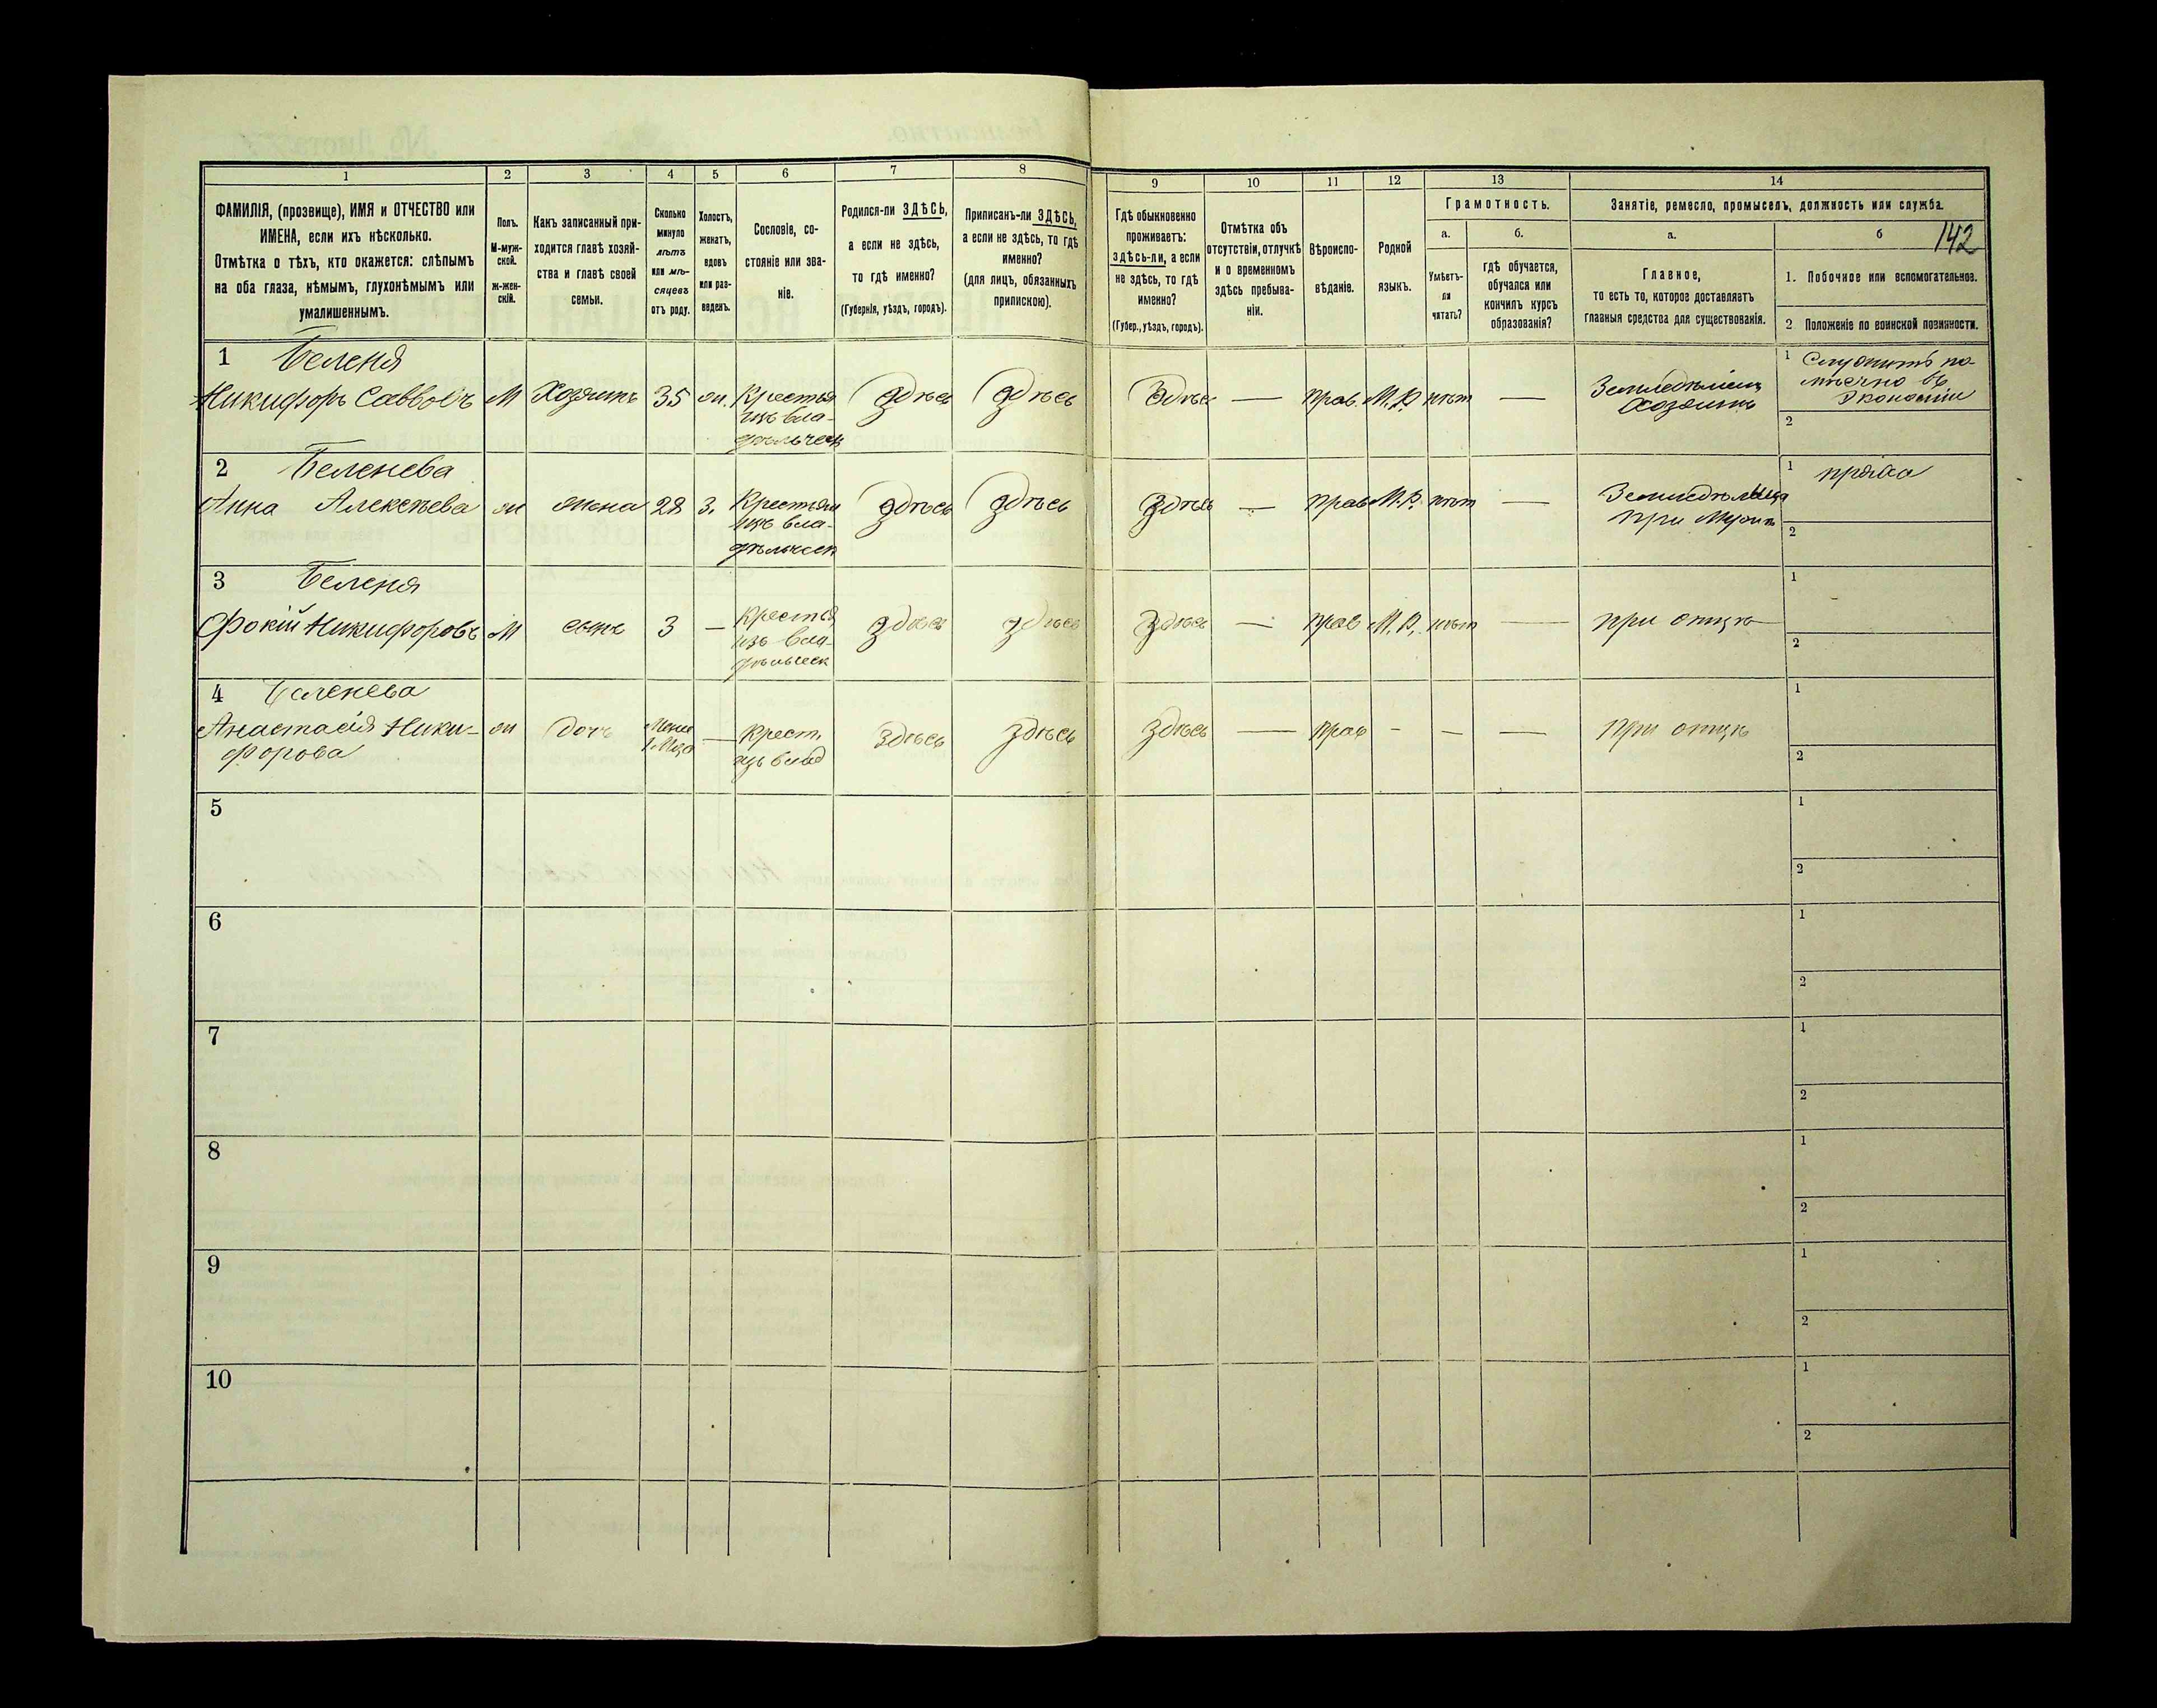 1 2 3 4 5 6 7 8 9 10 11 12 13 14
ФАМИЛІЯ, (прозвище), ИМЯ и ОТЧЕСТВО или
ИМЕНА, если ихъ нѣсколько.
Отмѣтка о тѣхъ, кто окажется: слѣпымъ
на оба глаза, нѣмымъ, глухонѣмымъ или
умалишеннымъ.
Полъ.
М-муж-
ской.
ж-жен-
скій.
Какъ записанный при-
ходится главѣ хозяй-
ства и главѣ своей
семьи.
Сколько
минуло
лѣтъ
или мѣ-
сяцевъ
отъ роду.
Холостъ,
женатъ,
вдовъ
или раз-
веденъ.
Сословіе, со-
стояніе или зва-
ніе.
Родился-ли ЗДѢСЬ,
а если не здѣсь,
то гдѣ именно?
(Губернія, уѣздъ, городъ).
Приписанъ-ли ЗДѢСЬ,
а если не здѣсь, то гдѣ
именно?
(для лицъ, обязанныхъ
припискою).
Гдѣ обыкновенно
проживаетъ:
здѣсь-ли, а если
не здѣсь, то гдѣ
именно?
(Губер., уѣздъ, городъ).
Отмѣтка объ
отсутствіи, отлучкѣ
и о временномъ
здѣсь пребыва-
ніи.
Вѣроиспо-
вѣданіе.
Родной
языкъ.
Грамотность.
а.
Умѣетъ-
ли
читать?
б.
гдѣ обучается,
обучался или
кончилъ курсъ
образованія?
Занятіе, ремесло, промыселъ, должность или служба.
а.
Главное,
то есть то, которое доставляетъ
главныя средства для существованія.
б
142
1. Побочное или вспомогательное.
2 Положеніе по воинской повинности.
1 Беленя
Никифоръ Саввовъ М Хозяинъ 35 ж. Крестья
изъ вла-
дѣльческ
здѣсь здѣсь здѣсь — прав. М.Р. нѣтъ —
Земледѣлецъ
хозяинъ
1 Служитъ по-
мѣсячно въ
экономіи
2
2 Беленева
Анна Алексѣева ж жена 28 З. Крестьян
изъ вла-
дѣльческ
здѣсь здѣсь здѣсь — прав М.Р. нѣтъ —
Земледѣлица
при мужѣ
1 пряха
2
3 Беленя
Фокій Никифоровъ М сынъ 3 — Крестья
изъ вла-
дѣльческ
здѣсь здѣсь здѣсь — прав М.Р. нѣтъ — при отцѣ
1
2
4 Беленева
Анастасія Ники-
форова
ж дочь Менѣе
1 Мѣся — Крест.
изъ влад
здѣсь здѣсь здѣсь — прав - - — при отцѣ
1
2
5 1
2
6 1
2
7 1
2
8 1
2
9 1
2
10 1
2